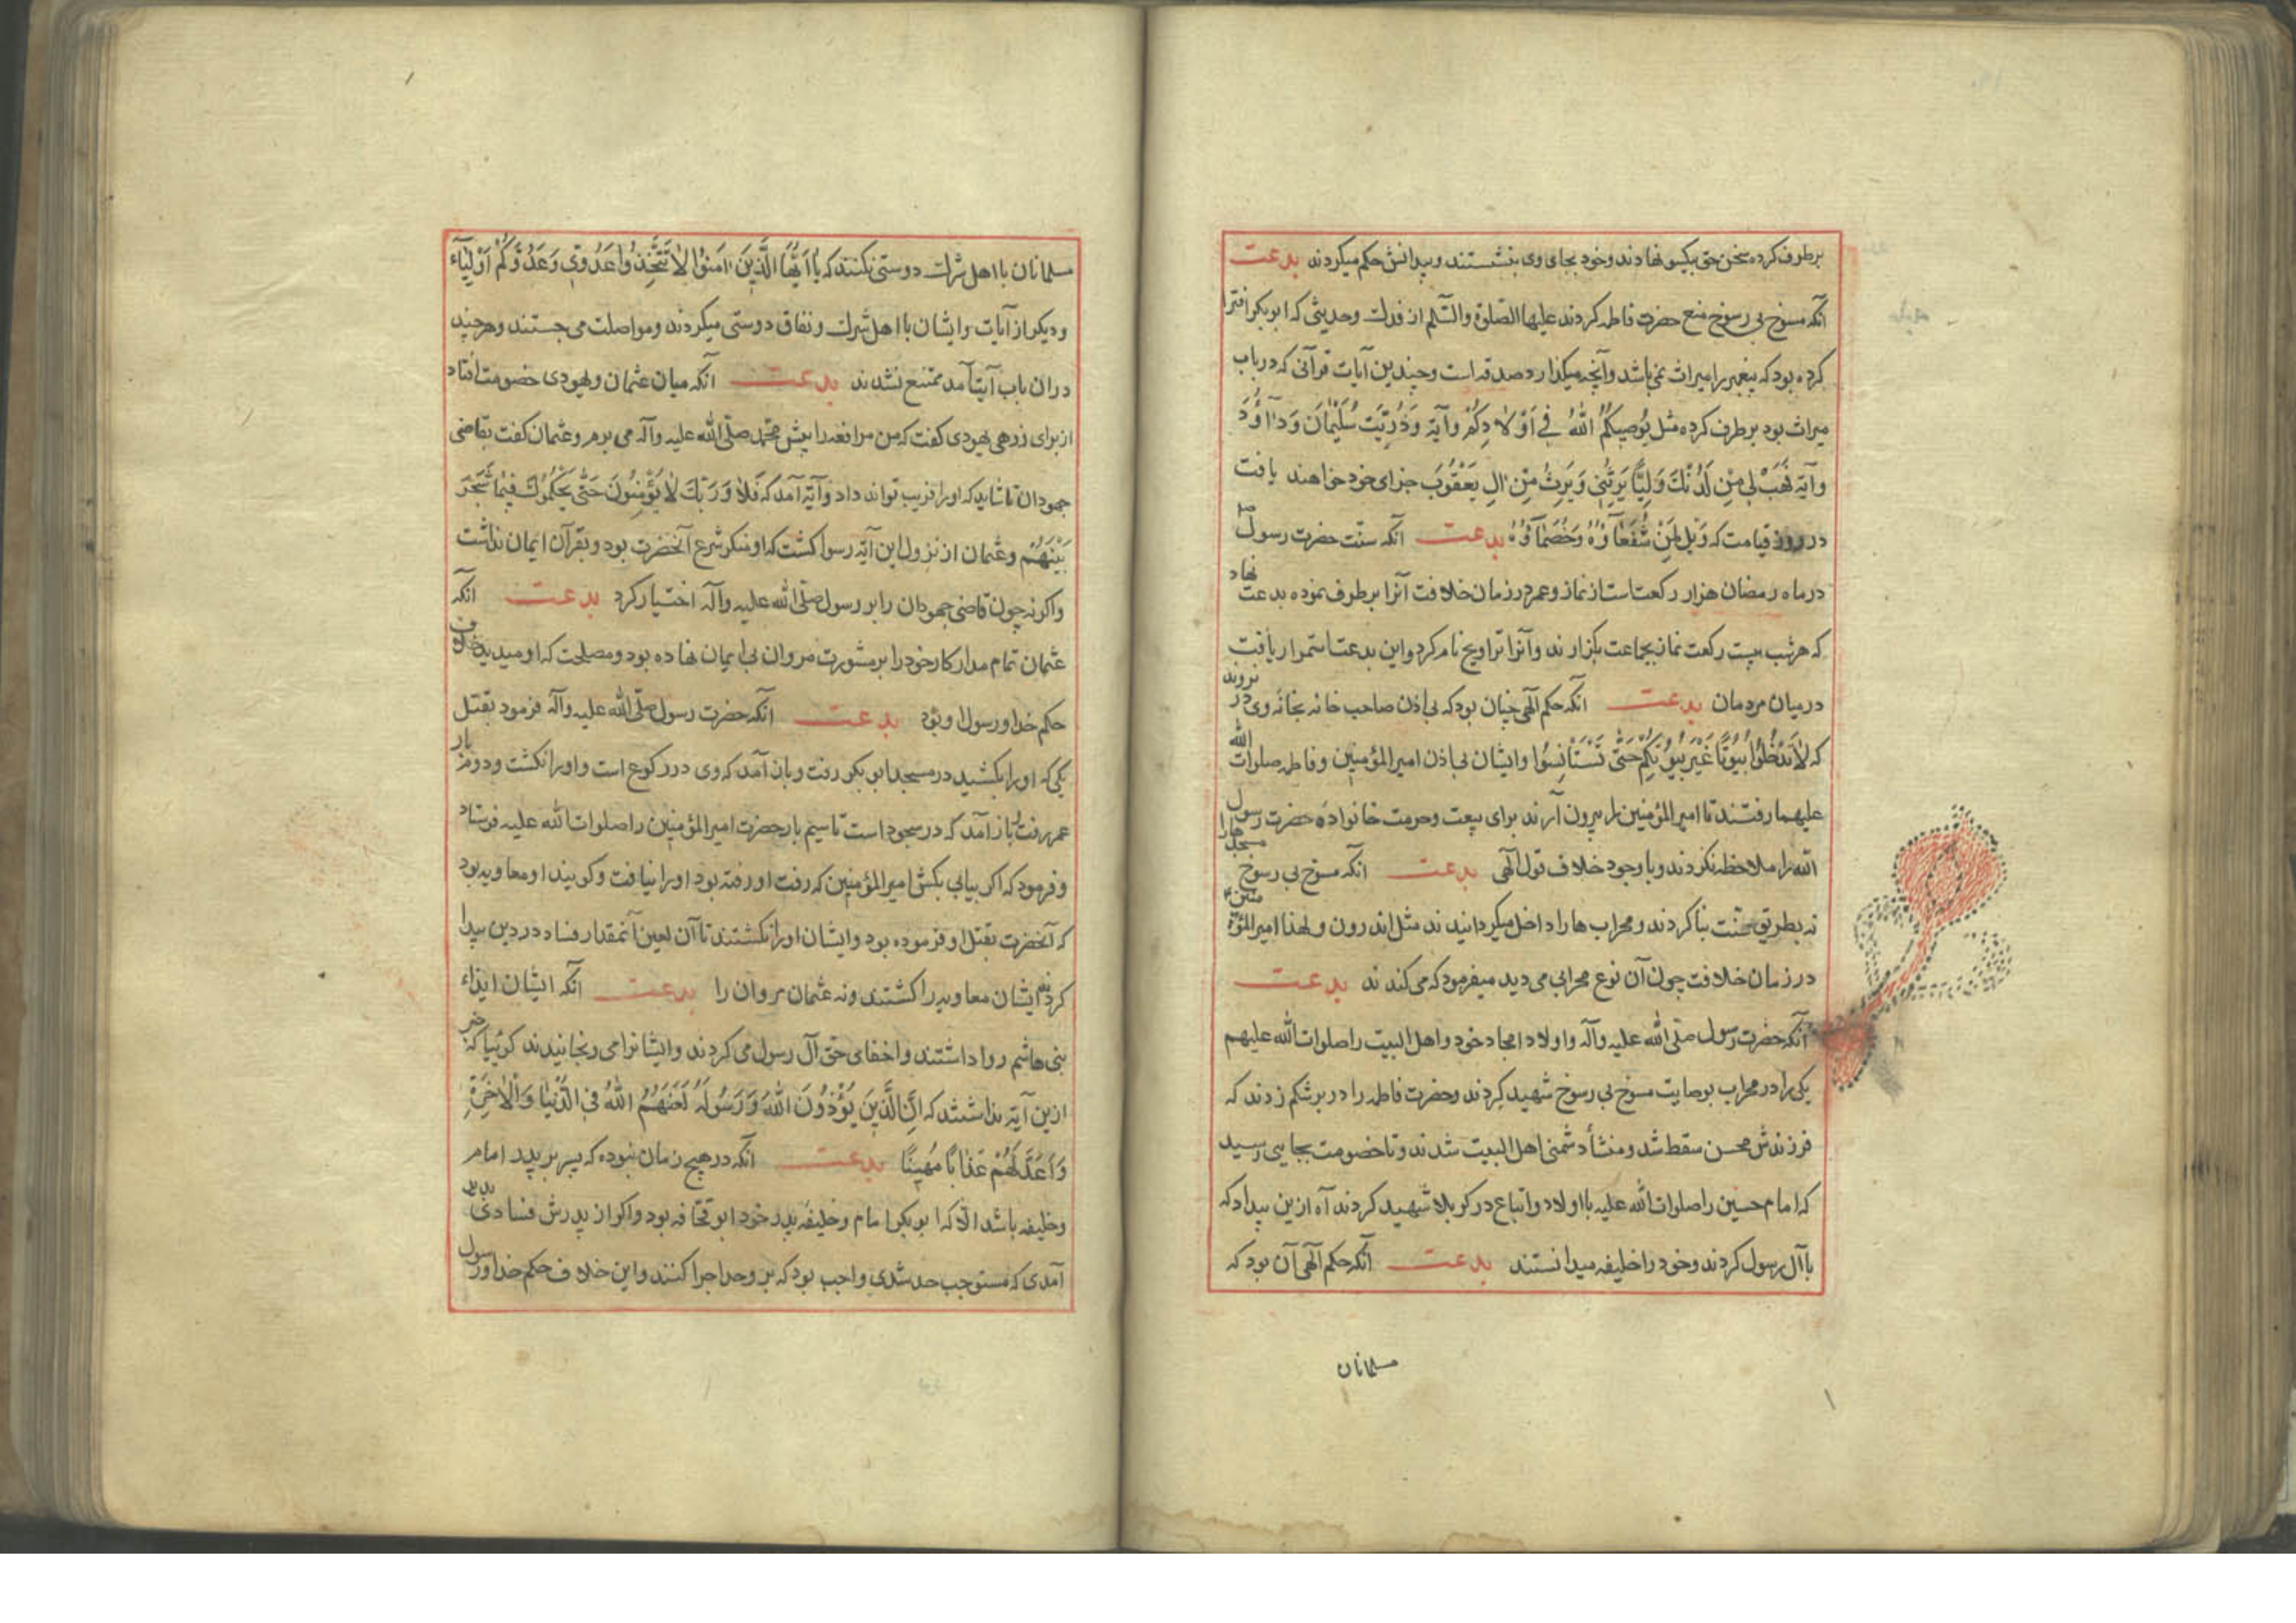 برطرف کرده سخن حق بیکسو نهادند و خود بجای وی بنشستند و بیدانش حکم میکردند بدعت
آنکه مسوخ بی رسوخ منع حضرت فاطمه کردند علیها الصلوة والسلم از فدک و حدیثی که ابوبکر افترا
کرده بود که پیغمبر را میراث نمی باشد و آنچه میگذارد صدقه است و چندین آیات قرآنی که در باب
میراث بود برطرف کرده مثل یُوصِیکُمُ اللهُ فِی اَوْلَادِکُمْ و آیة وَذُرِّیَّتِ سُلَیْمَانَ وَدَاوُدَ
و آیة فَهَبْ لِی مِنْ لَدُنْکَ وَلِیًّا یَرِثُنِی وَیَرِثُ مِنْ آلِ یَعْقُوبَ جزای خود خواهند یافت
در روز قیامت که وَیْلٌ لِمَنْ شُفَعَاؤُهُ خُصَمَاؤُهُ بدعت آنکه سنت حضرت رسول ص
در ماه رمضان هزار رکعتاست از نماز و عمر در زمان خلافت آنرا برطرف نموده بدعت نهاد
که هر شب بیست رکعت نماز بجماعت بگزارند و آنرا تراویح نام کرد و این بدعت استمرار یافت
در میان مردمان بدعت آنکه حکم الهی چنان بود که بی اذن صاحب خانه بخانه وی در نروند
که لَا تَدْخُلُوا بُیُوتًا غَیْرَ بُیُوتِکُمْ حَتَّی تَسْتَانِسُوا و ایشان بی اذن امیرالمؤمنین و فاطمه صلوات الله
علیهما رفتند تا امیرالمؤمنین را بیرون آرند برای بیعت و حرمت خانواده حضرت رسول
الله را ملاحظه نکردند و با وجود خلاف قول الهی بدعت آنکه مسوخ بی رسوخ مسجدها را
نه بطریق سنت بنا کردند و محراب ها را داخل میگردانیدند مثل اندرون و لهذا امیرالمؤمنین
در زمان خلافت چون آن نوع محرابی می دید میفرمود که می کندند بدعت
آنکه حضرت رسول صلی الله علیه وآله و اولاد امجاد خود و اهل البیت را صلوات الله علیهم
یکی را در محراب بوصایت مسوخ بی رسوخ شهید کردند و حضرت فاطمه را در بر شکم زدند که
فرزندش محسن سقط شد و منشأ دشمنی اهل البیت شدند و تا خصومت بجایی رسید
که امام حسین را صلوات الله علیه با اولاد و اتباع در کربلا شهید کردند آه ازین بیداد که
با آل رسول کردند و خود را خلیفه میدانستند بدعت آنکه حکم الهی آن بود که
مسلمانان
مسلمانان با اهل شرک دوستی نکنند که یَا اَیُّهَا الَّذِینَ اٰمَنُوا لَا تَتَّخِذُوا عَدُوِّی وَعَدُوَّکُمْ اَوْلِیَاءَ
و دیگر از آیات و ایشان با اهل شرک و نفاق دوستی میکردند و مواصلت می جستند و هر چند
در ان باب آیت آمد ممتنع نشدند بدعت آنکه میان عثمان و یهودی خصومت افتاد
از برای زرهی یهودی گفت که من مرافعه را پیش محمد صلی الله علیه وآله می برم و عثمان گفت بقاضی
جهودان تا شاید که او را فریب تواند داد و آیة آمد که فَلَا وَرَبِّکَ لَا یُؤْمِنُونَ حَتَّی یُحَکِّمُوکَ فِیمَا شَجَرَ
بَیْنَهُمْ و عثمان از نزول این آیة رسوا گشت که او منکر شرع آنحضرت بود و بقرآن ایمان نداشت
و اگر نه چون قاضی جهودان را بر رسول صلی الله علیه وآله اختیار کرد بدعت آنکه
عثمان تمام مدار کار خود را بر مشورت مروان بی ایمان نهاده بود و مصلحت که او میدید خلاف
حکم خدا و رسول او بود بدعت آنکه حضرت رسول صلی الله علیه وآله فرمود بقتل
یکی که او را بکشید در مسجد ابوبکر رفت و باز آمد که وی در رکوع است و او را نکشت و دوم بار
عمر رفت باز آمد که در سجود است تا سیم بار حضرت امیرالمؤمنین را صلوات الله علیه فرستاد
و فرمود که اگر بیابی بکش امیرالمؤمنین که رفت او رفته بود او را نیافت و گویند او معاویه بود
که آنحضرت بقتل او فرموده بود و ایشان او را نکشتند تا آن لعین آنمقدار فساد در دین پیدا
کرد نه ایشان معاویه را کشتند و نه عثمان مروان را بدعت آنکه ایشان ایذاء
بنی هاشم روا داشتند و اخفای حق آل رسول می کردند و ایشانرا می رنجانیدند گوئیا که خبر
ازین آیة نداشتند که اِنَّ الَّذِینَ یُؤْذُونَ اللهَ وَرَسُولَهُ لَعَنَهُمُ اللهُ فِی الدُّنْیَا وَالْاٰخِرَةِ
وَاَعَدَّ لَهُمْ عَذَابًا مُهِینًا بدعت آنکه در هیچ زمان نبوده که پسر بر پدر امام
و خلیفه باشد الا که ابوبکر امام و خلیفه پدر خود ابو قحافه بود و اگر از پدرش فسادی
آمدی که مستوجب حد شدی واجب بود که بر وحد اجرا کنند و این خلاف حکم خدا و رسول